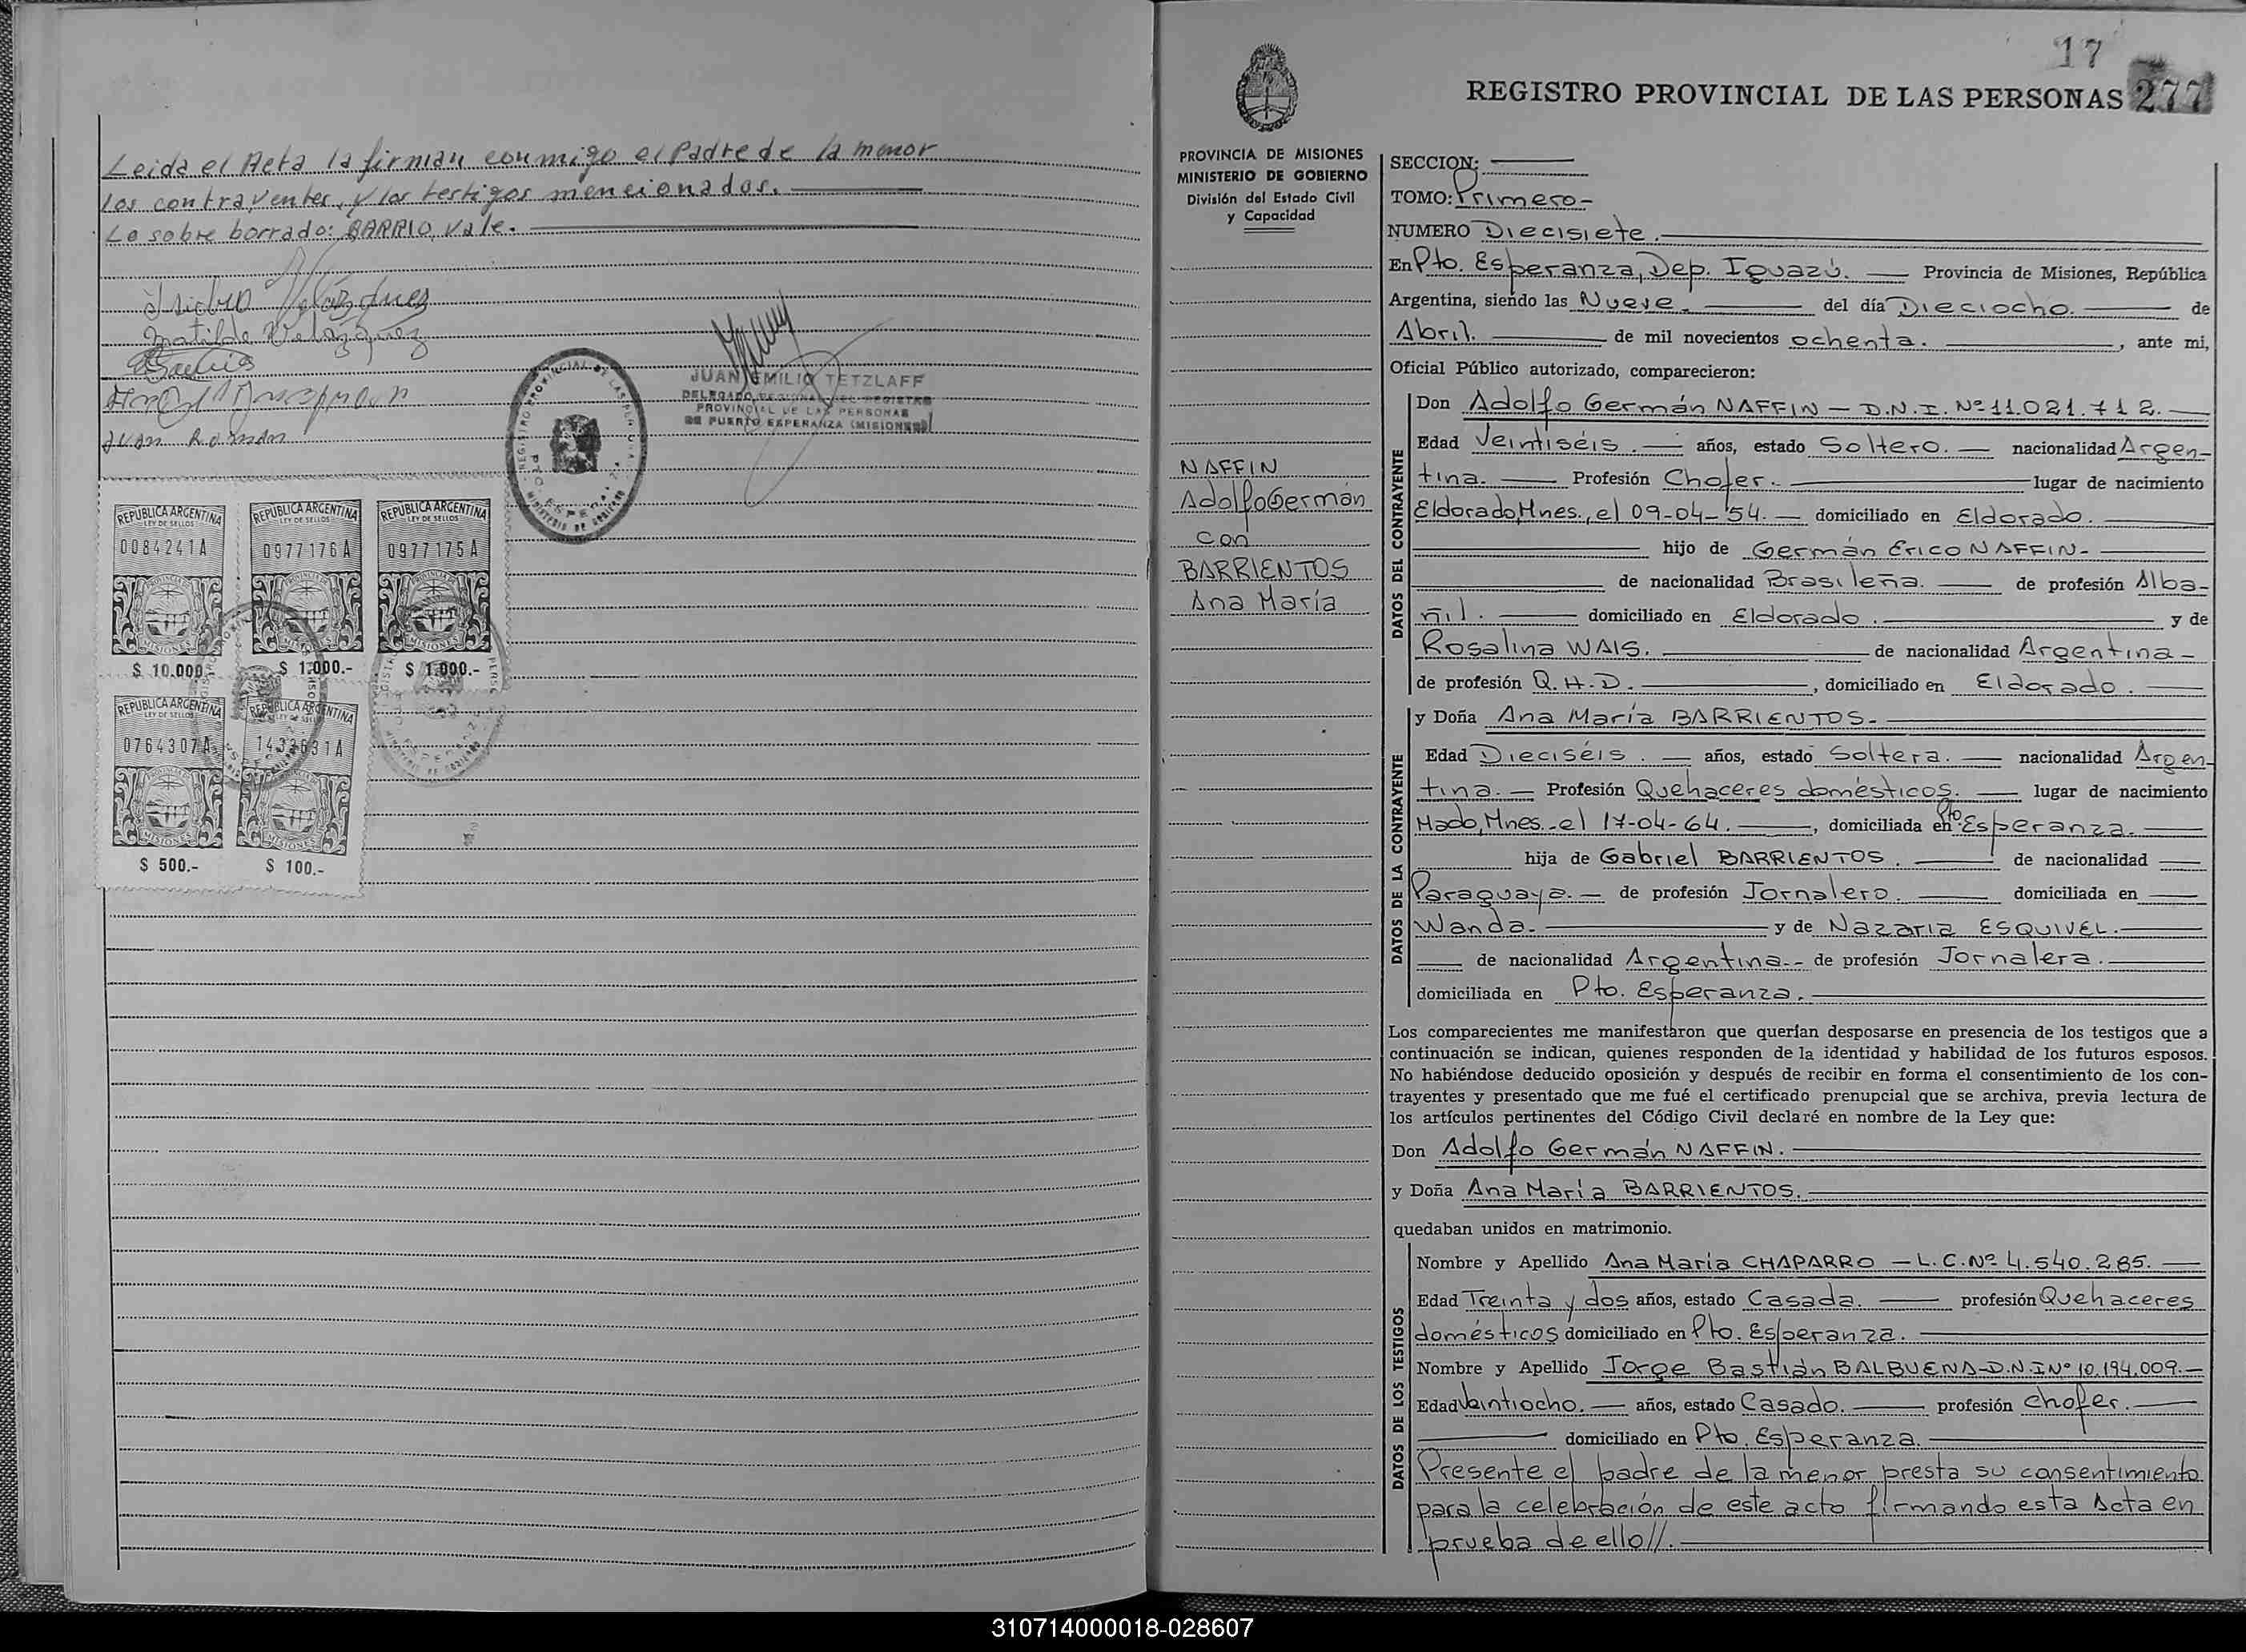 Leida el Acta la firman conmigo el Padre de la menor
los contrayentes, y los testigos mencionados.
Lo sobre borrado: BARRIO, Vale.
Matilde Velázquez
Juan Román
JUAN EMILIO TETZLAFF
DELEGADO REGIONAL DEL REGISTRO
PROVINCIAL DE LAS PERSONAS
DE PUERTO ESPERANZA (MISIONES)
REPUBLICA ARGENTINA
LEY DE SELLOS
0084241A
MISIONES
$ 10.000
REPUBLICA ARGENTINA
LEY DE SELLOS
0977176A
MISIONES
$ 1.000.-
REPUBLICA ARGENTINA
LEY DE SELLOS
0977175A
MISIONES
$ 1.000.-
REPUBLICA ARGENTINA
LEY DE SELLOS
0764307A
MISIONES
$ 500.-
REPUBLICA ARGENTINA
LEY DE SELLOS
MISIONES
$ 100.-
17
REGISTRO PROVINCIAL DE LAS PERSONAS 277
PROVINCIA DE MISIONES
MINISTERIO DE GOBIERNO
División del Estado Civil
y Capacidad
NAFFIN
Adolfo Germán
con
BARRIENTOS
Ana María
SECCION:
TOMO: Primero-
NUMERO Diecisiete.
En Pto. Esperanza, Dep. Iguazú. Provincia de Misiones, República
Argentina, siendo las Nueve del día Dieciocho. de
Abril. de mil novecientos ochenta. , ante mi,
Oficial Público autorizado, comparecieron:
DATOS DEL CONTRAYENTE
Don Adolfo Germán NAFFIN - D.N.I. Nº 11.021.712.
Edad Veintiséis. años, estado Soltero. nacionalidad Argen-
tina. Profesión Chofer. lugar de nacimiento
Eldorado, Mnes., el 09-04-'54. domiciliado en Eldorado.
hijo de Germán Erico NAFFIN-
de nacionalidad Brasileña. de profesión Alba-
ñil. domiciliado en Eldorado. y de
Rosalina WAIS. de nacionalidad Argentina-
de profesión Q.H.D. , domiciliado en Eldorado.
DATOS DE LA CONTRAYENTE
y Doña Ana María BARRIENTOS-
Edad Dieciséis. años, estado Soltera. nacionalidad Argen-
tina. Profesión Quehaceres domésticos. lugar de nacimiento
Mado, Mnes.-el 17-04-64. , domiciliada en Pto Esperanza.
hija de Gabriel BARRIENTOS. de nacionalidad
Paraguaya. de profesión Jornalero. domiciliada en
Wanda. y de Nazaria ESQUIVEL.
de nacionalidad Argentina-- de profesión Jornalera.
domiciliada en Pto. Esperanza.
Los comparecientes me manifestaron que querían desposarse en presencia de los testigos que a
continuación se indican, quienes responden de la identidad y habilidad de los futuros esposos.
No habiéndose deducido oposición y después de recibir en forma el consentimiento de los con-
trayentes y presentado que me fué el certificado prenupcial que se archiva, previa lectura de
los artículos pertinentes del Código Civil declaré en nombre de la Ley que:
Don Adolfo Germán NAFFIN.
y Doña Ana María BARRIENTOS.
quedaban unidos en matrimonio.
DATOS DE LOS TESTIGOS
Nombre y Apellido Ana María CHAPARRO - L.C.Nº 4.540.285.
Edad Treinta y dos años, estado Casada. profesión Quehaceres
domésticos domiciliado en Pto. Esperanza.
Nombre y Apellido Jorge Bastián BALBUENA-D.N.I Nº 10.194.009.-
Edad Veintiocho. años, estado Casado. profesión chofer.
domiciliado en Pto. Esperanza.
Presente el padre de la menor presta su consentimiento
para la celebración de este acto firmando esta Acta en
prueba de ello//.
310714000018-028607